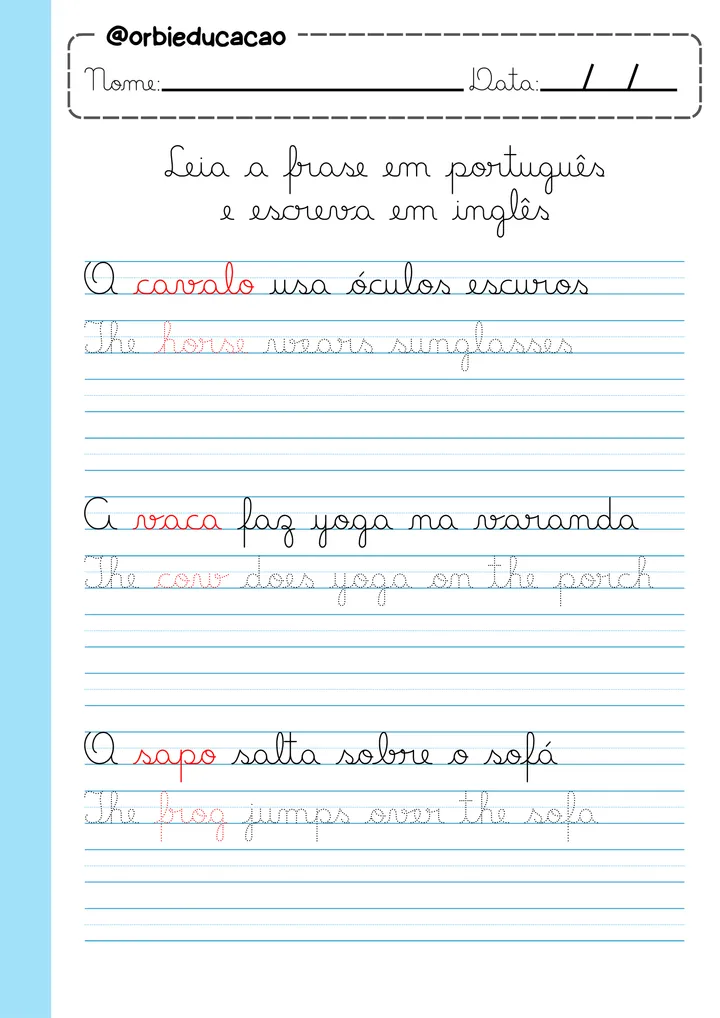 @orbieducacao
Nome: Data: / /
Leia a frase em português
e escreva em inglês
O cavalo usa óculos escuros
The horse wears sunglasses
A vaca faz yoga na varanda
The cow does yoga on the porch
O sapo salta sobre o sofá
The frog jumps over the sofa